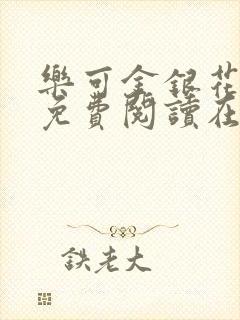 樂可金銀花
免費閱讀在
鉄老大